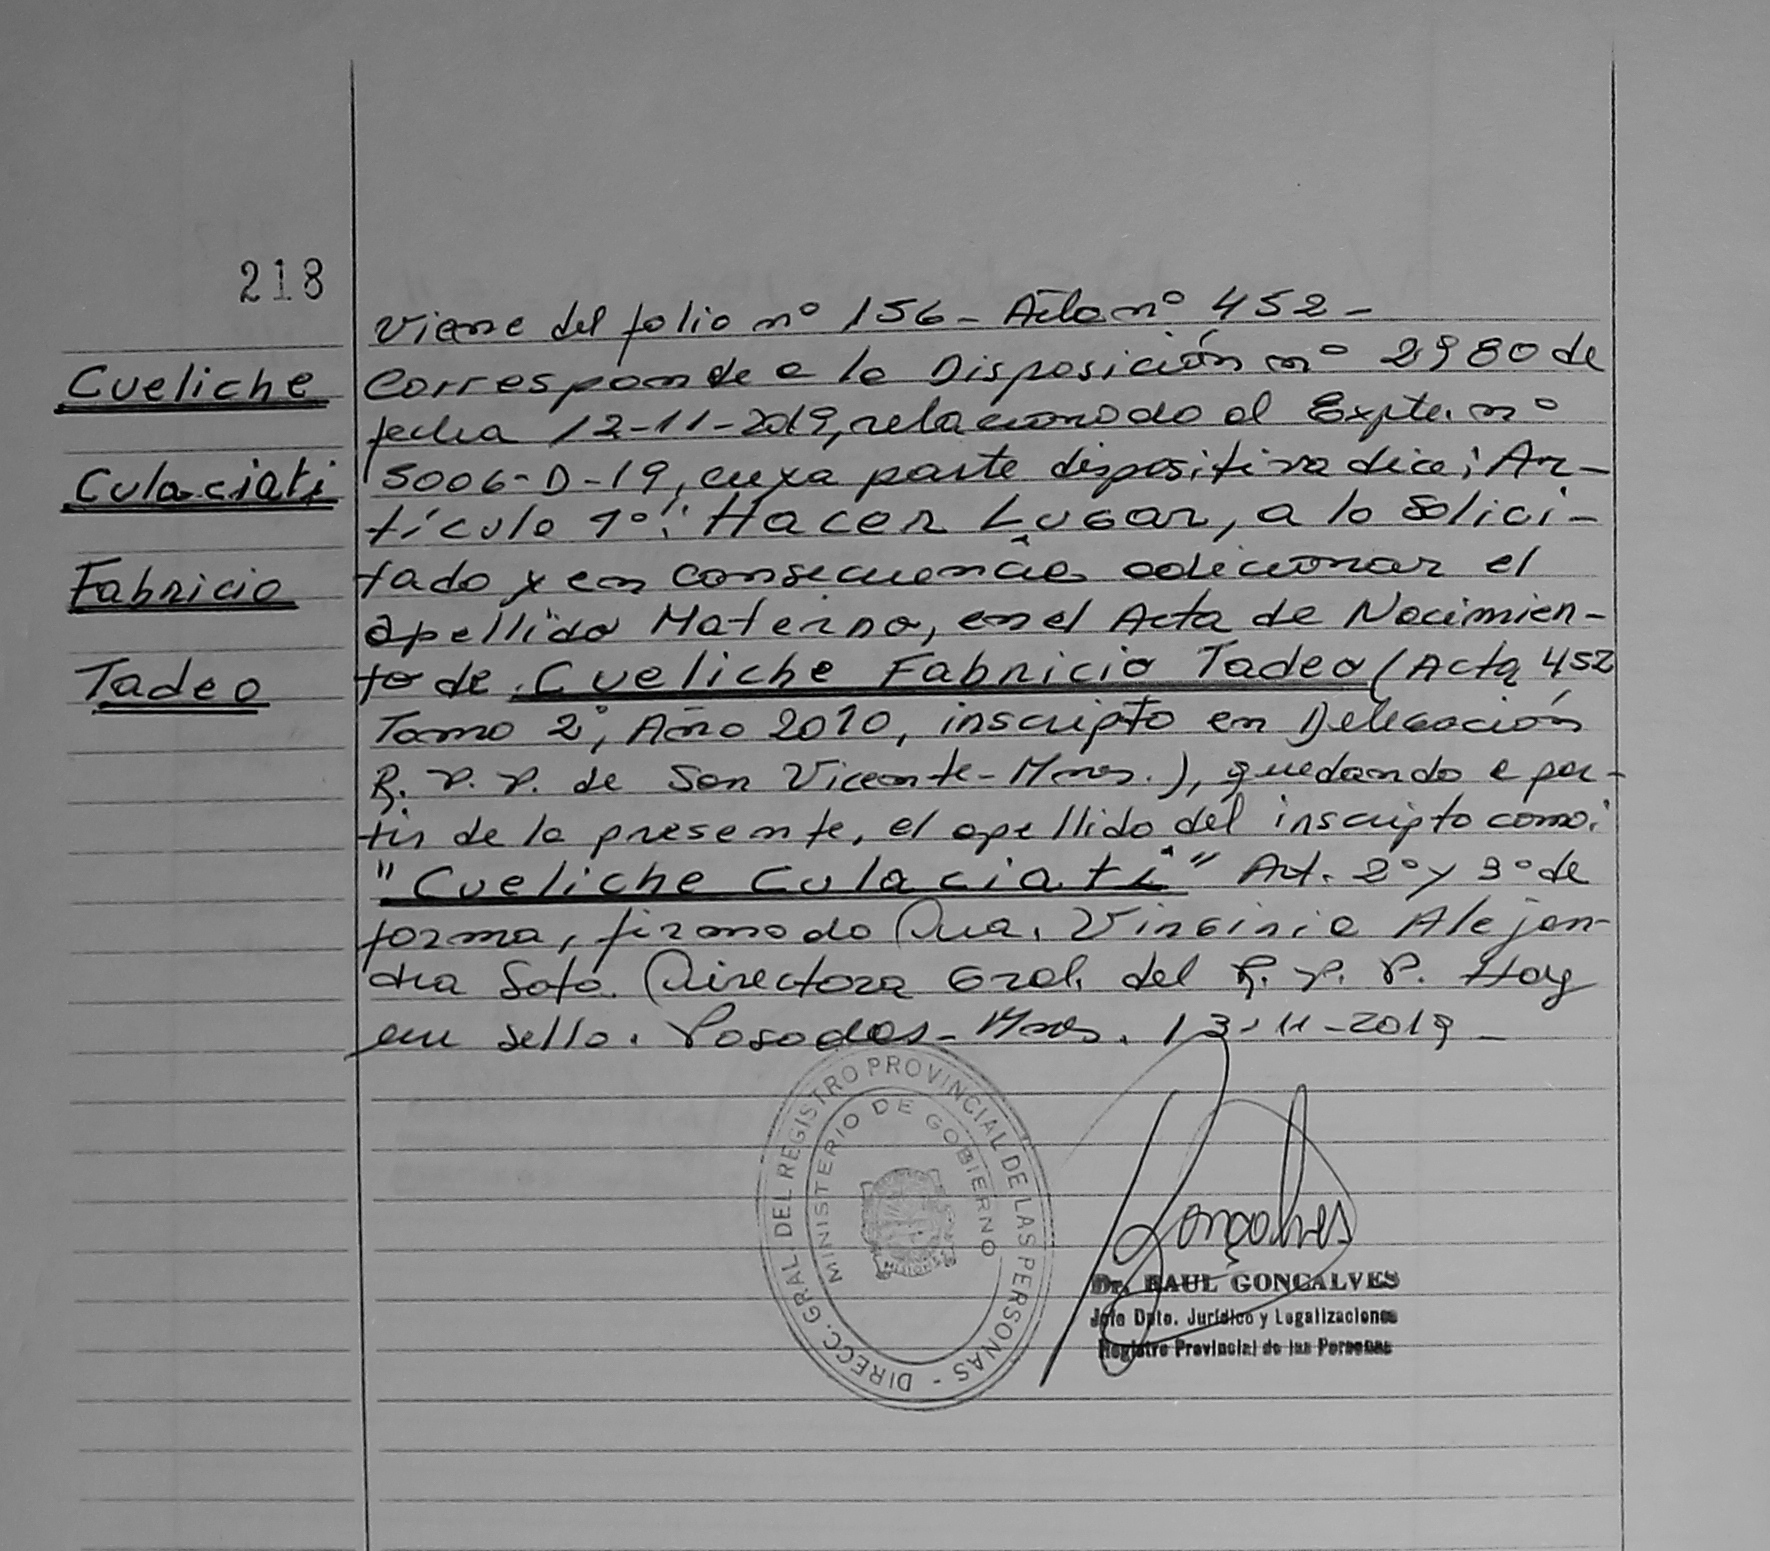 218
Viene del folio nº 156 - Acta nº 452 -
Cueliche
Corresponde a la Disposición nº 2980 de
fecha 12-11-2019, relacionado al Expte. nº
Culaciati
5006-D-19, cuya parte dispositiva dice; Ar-
tículo 1º: "Hacer Lugar, a lo solici-
Fabricio
tado y en consecuencia adicionar el
apellido Materno, en el Acta de Nacimien-
Tadeo
to de Cueliche Fabricio Tadeo (Acta 452
Tomo 2º, Año 2010, inscripto en Delegación
R. P. P. de San Vicente - Mnes.), quedando a par-
tir de la presente, el apellido del inscripto como:
"Cueliche Culaciati" Art. 2º y 3º de
forma, firmado Dra. Virginia Alejan-
dra Soto. Directora Gral. del R. P. P. Hay
un sello. Posadas - Mnes. 13-11-2019 -
DIRECC. GRAL. DEL REGISTRO PROVINCIAL DE LAS PERSONAS -
MINISTERIO DE GOBIERNO
MISIONES
Gonçalves
Dr. RAUL GONCALVES
Jefe Dpto. Jurídico y Legalizaciones
Registro Provincial de las Personas